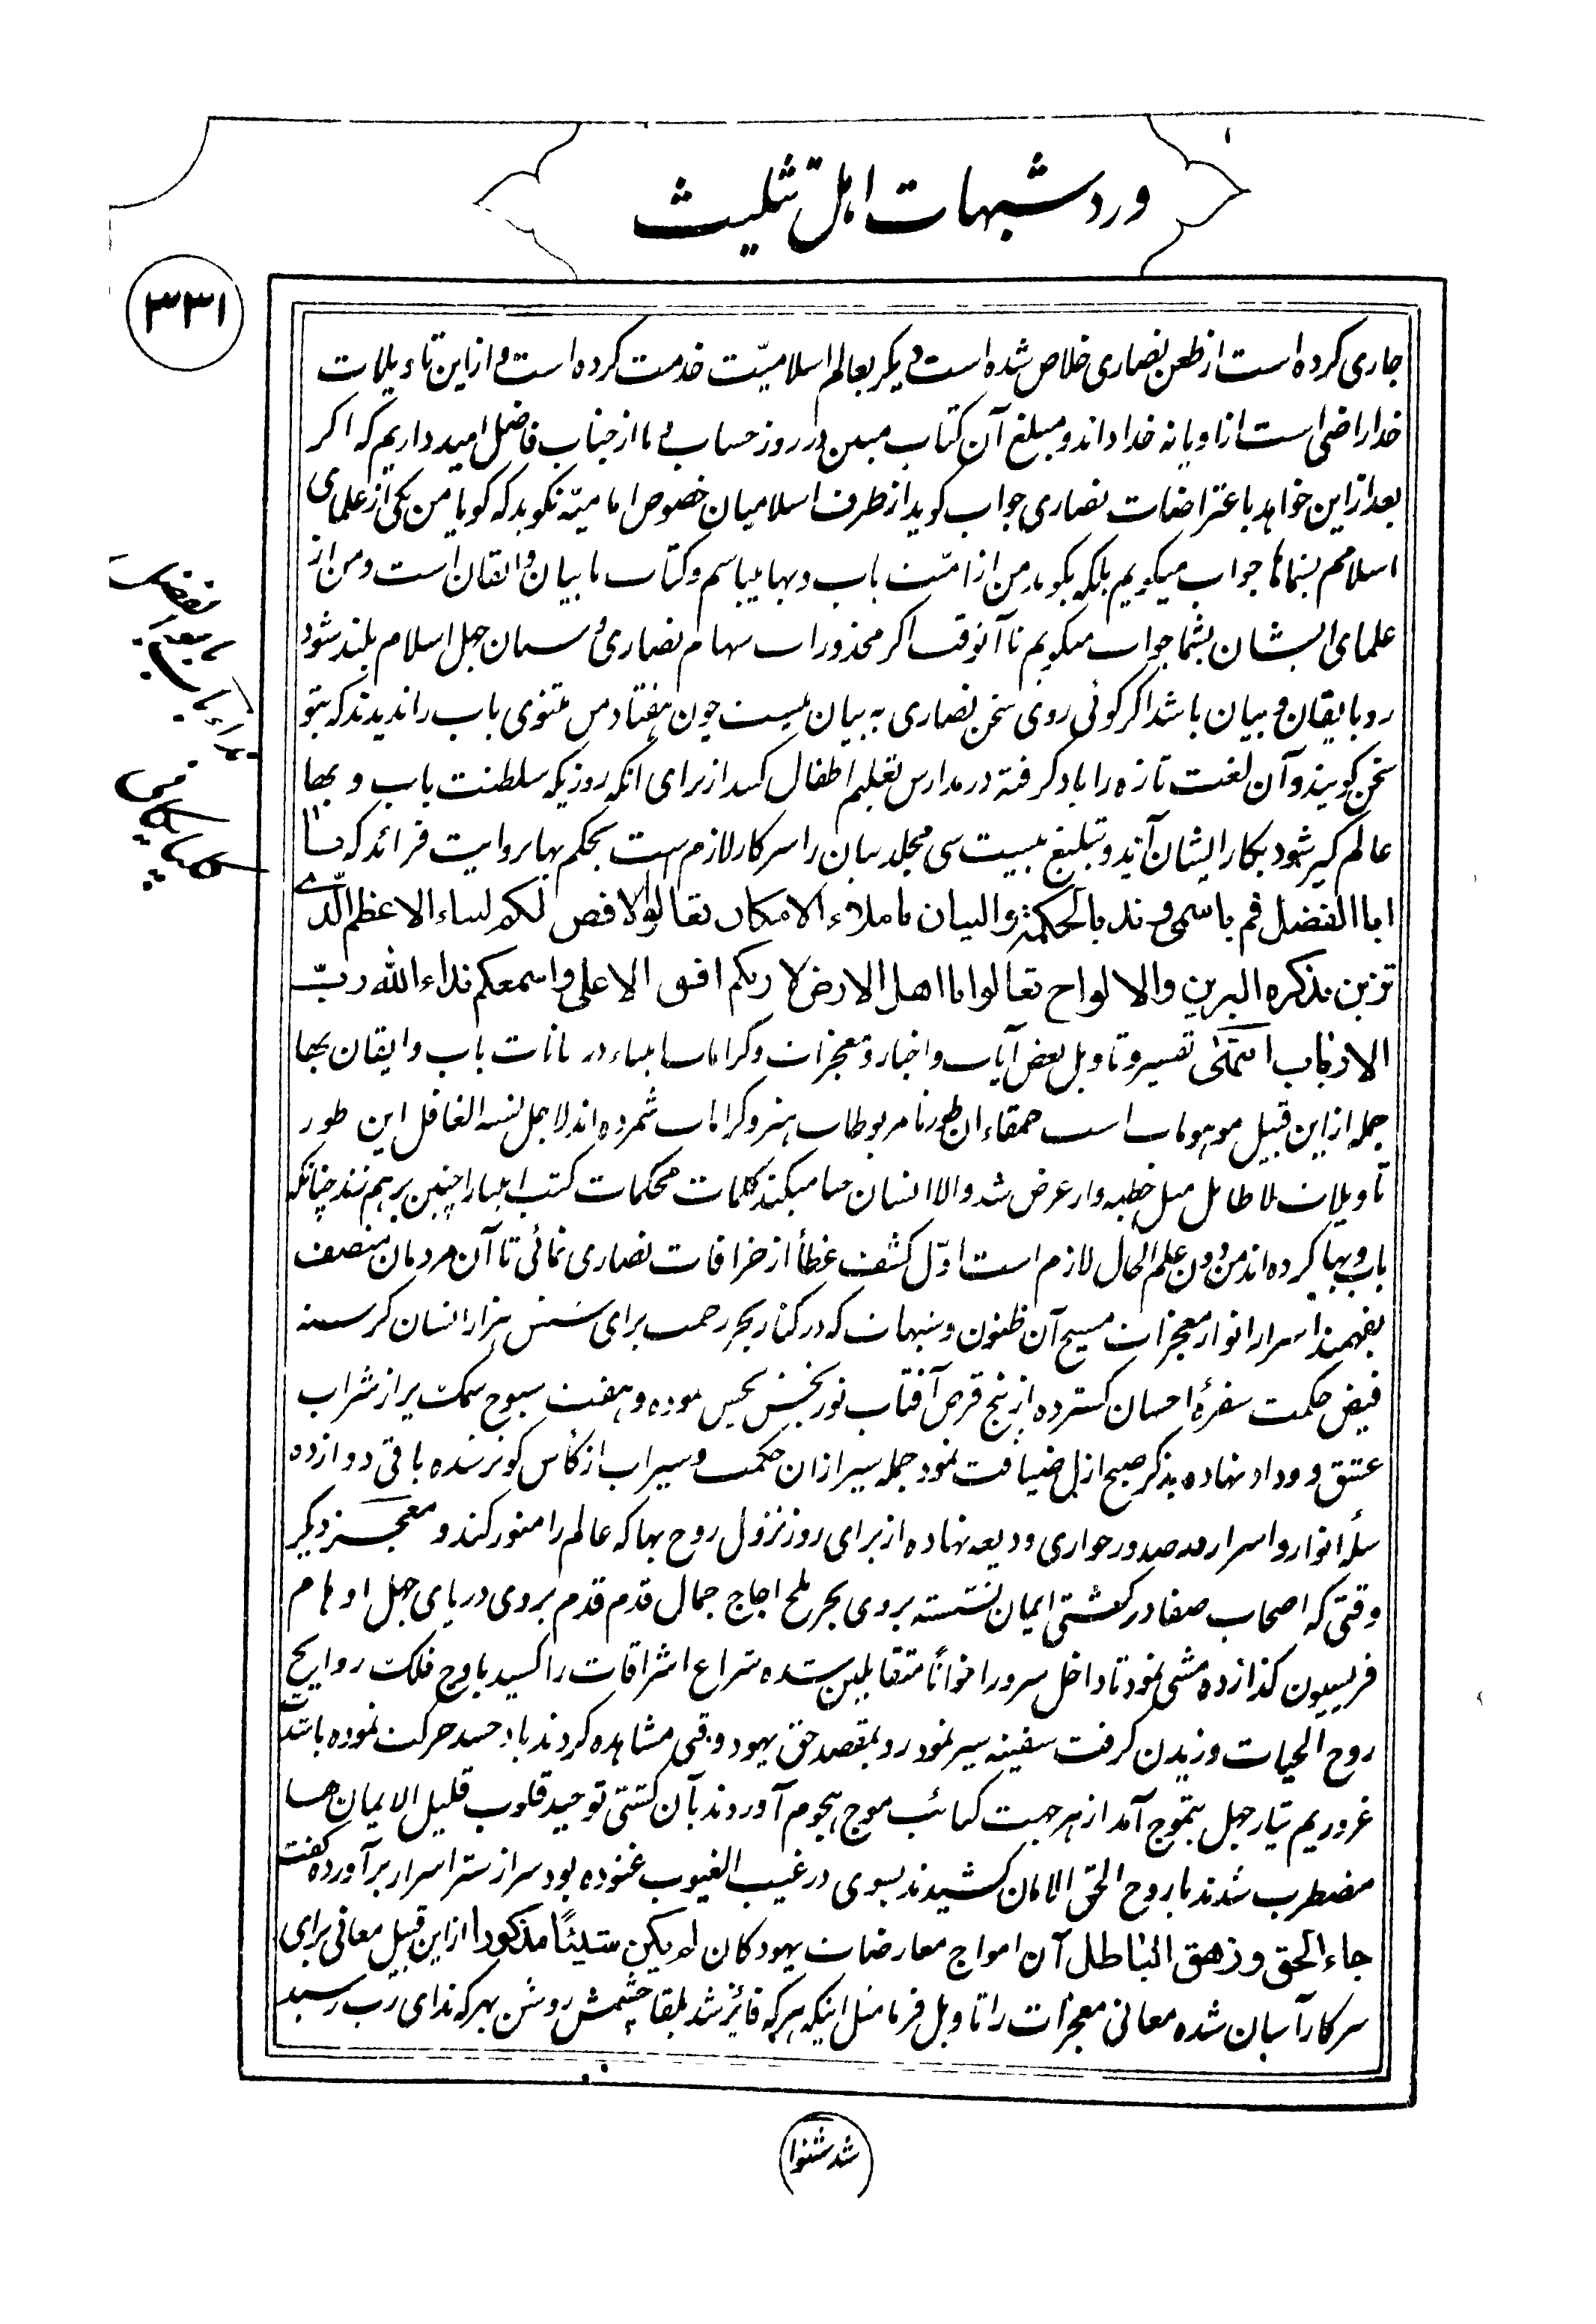 ورد شبهات اهل تثلیث
۳۳۱
جاری کرده است از طعن نصاری خلاص شده است دیگر بعالم اسلامیّت خدمت کرده است و از این تاءویلات
خدا راضی است از او یا نه خدا داند و مبلغ آن کتاب مبین در روز حساب ما از جناب فاضل امید داریم که اکر
بعد از این خواهد باعتراضات نصاری جواب کوید از طرف اسلامیان خصوص امامیّه نکوید که کویا من یکی از علمای
اسلامم بشماها جواب میکویم بلکه بکوید من از امّت باب و بها میباشم و کتاب ما بیان و ایقان است و من از
علمای ایشان بشما جواب میکویم تا آنوقت اکر محذورات سهام نصاری جهل اسلام بلند شود
رو بایقان و بیان باشد اکر کوئی روی سخن نصاری به بیان نیست چون هفتاد من مثنوی باب را ندیدند که بتو
سخن کویند و آن لغت تازه را یاد کرفته در مدارس تعلیم اطفال کنند از برای انکه روزیکه سلطنت باب و بها
عالم کیر شود بکار ایشان آید و تبلیغ بیست سی مجلد بیان را سرکار لازم است بحکم بها بروایت فرائد که یا
ابا الفضل قم باسمی و ند بالحکمة والبیان یا ملاء الامکان تعالوا لاقص لکم نباء الاعظم الّذی
تزین بذکره الزبر والالواح تعالوا یا اهل الارض لاریکم افق الاعلی و اسمعکم نداء الله ربّ
الارباب انتهی تفسیر و تاویل بعض آیات و اخبار و معجزات و کرامات انبیاء در بیانات باب و ایقان بها
جمله از این قبیل موهومات است حمقاء ان طور نامربوطات هنر و کرامات شمرده اند لاجل تنبیه الغافل این طور
تاویلات لاطایل مثل خطبه وار عرض شد والا انسان حیا میکند کلمات محکمات کتب انبیا را چنین برهم زند چنانکه
باب و بها کرده اند من دون علم الحال لازم است اوّل کشف غطأ از خرافات نصاری نمائی تا آن مردمان منصف
بفهمند اسرار انوار معجزات مسیح آن ظنون و شبهات که در کنار بحر رحمت برای شش هزار انسان کرسنه
فیض حکمت سفرهٔ احسان کسترده از پنج قرص آفتاب نور بخش نموده و هفت سبوح سمک پر از شراب
عشق و وداد نهاده بذکر صبح ازل ضیافت نمود جمله سیر از نان حکمت و سیراب از کأس کوثر شده باقی دوازده
سلّه انوار و اسرار در صدور حواری ودیعه نهاده از برای روز نزول روح بها که عالم را منور کند و معجز دیکر
وقتی که اصحاب صفا در کشتی ایمان نشسته بروی بحر ملح اجاج جمال قدم قدم بروی دریای جهل اوهام
فریسیون کذارده مشی نمود تا داخل سرور اخوانًا متقابلین شده شراع اشراقات را کسید باوج فلک روایح
روح الحیات وزیدن کرفت سفینه سیر نمود رو بمقصد حق یهود وقتی مشاهده کردند باد حسد حرکت نموده باشد
غرور یم تیار جهل بتموج آمد از هر جهت کتائب موج هجوم آوردند بآن کشتی توحید قلوب قلیل الایمان ها
مضطرب شدند یا روح الحق الامان کشیدند بسوی در غیب الغیوب غنوده بود سر از ستر اسرار برآورده کفت
جاء الحق و زهق الباطل آن امواج معارضات یهود کان لم یکن شیئًا مذکورا از این قبیل معانی برای
سرکار آسان شده معانی معجزات را تاویل فرما مثل اینکه هر که فائز شد بلقا چشمش روشن بهر که ندای رب رسید
شد شنوا